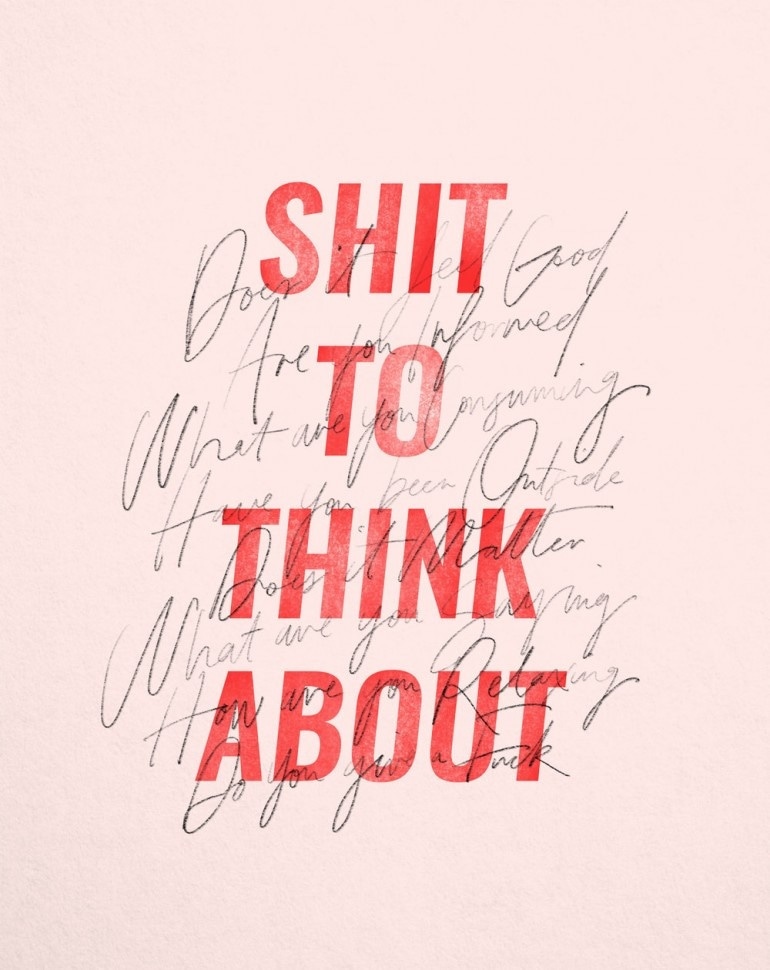 SHIT
Does it feel Good
Are you Informed
TO
What are you Consuming
Have you been Outside
THINK
Does it Matter
What are you Saying
ABOUT
How are you Relaxing
Do you give a Fuck